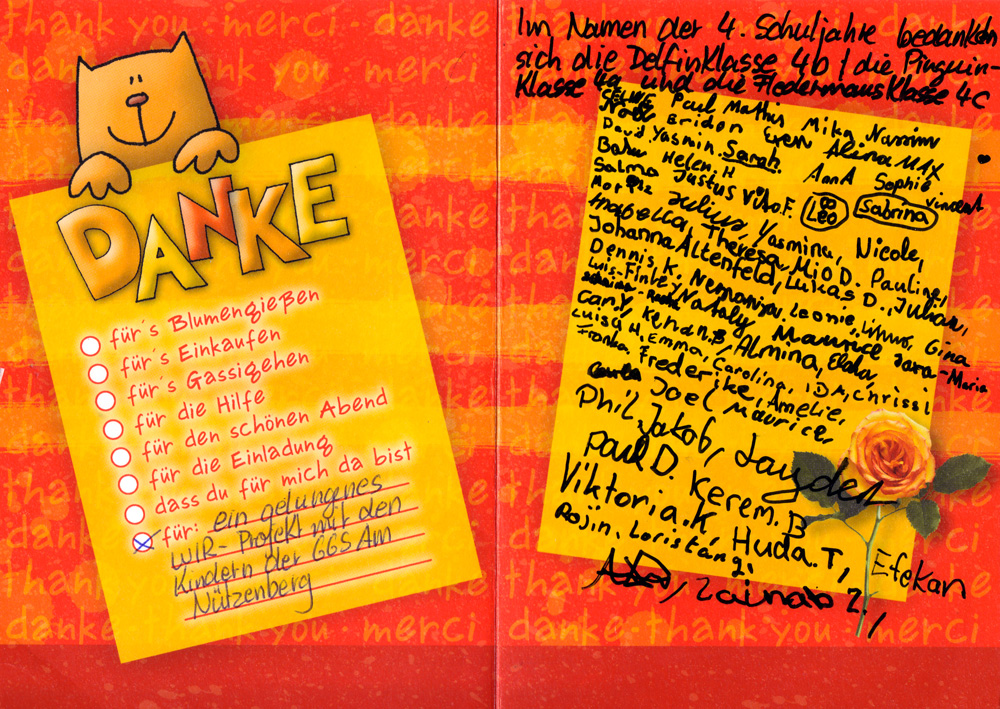 DANKE
für's Blumengießen
für's Einkaufen
für's Gassigehen
für die Hilfe
für den schönen Abend
für die Einladung
dass du für mich da bist
für: ein gelungnes
WIR-Projekt mit den
Kindern der GGS Am
Nützenberg
Im Namen der 4. Schuljahre bedanken
sich die Delfinklasse 4b / die Pinguin-
Klasse 4a und die Fledermausklasse 4c
Paul Mathis Mika Narrinn
Bridon Eren Alina MAX
David Yasmin Sarah AnnA Sophie Vincent
Helen, H
Salma Justus Vito F. Leo Sabrina
Moritz Julius, Yasmina, Nicole,
Theresa, Mio D. Pauline,
Johanna Altenfeld, Lukas D., Julian,
Dennis K, Leonie, Linus, Gina
Luis-Finley Nataly, Maurice Sara-Maria
Can Y, Kenan.B, Almina, Elda,
Luisa H, Emma, Carolina, IDA, Chrissi
Franka, Frederike, Amelie,
Joel Maurice,
Phil Jakob,
Paul D. Kerem.B
Viktoria.K, Huda.T, Efekan
Rojin, Loristan
Zainab Z.,
danke thank you merci